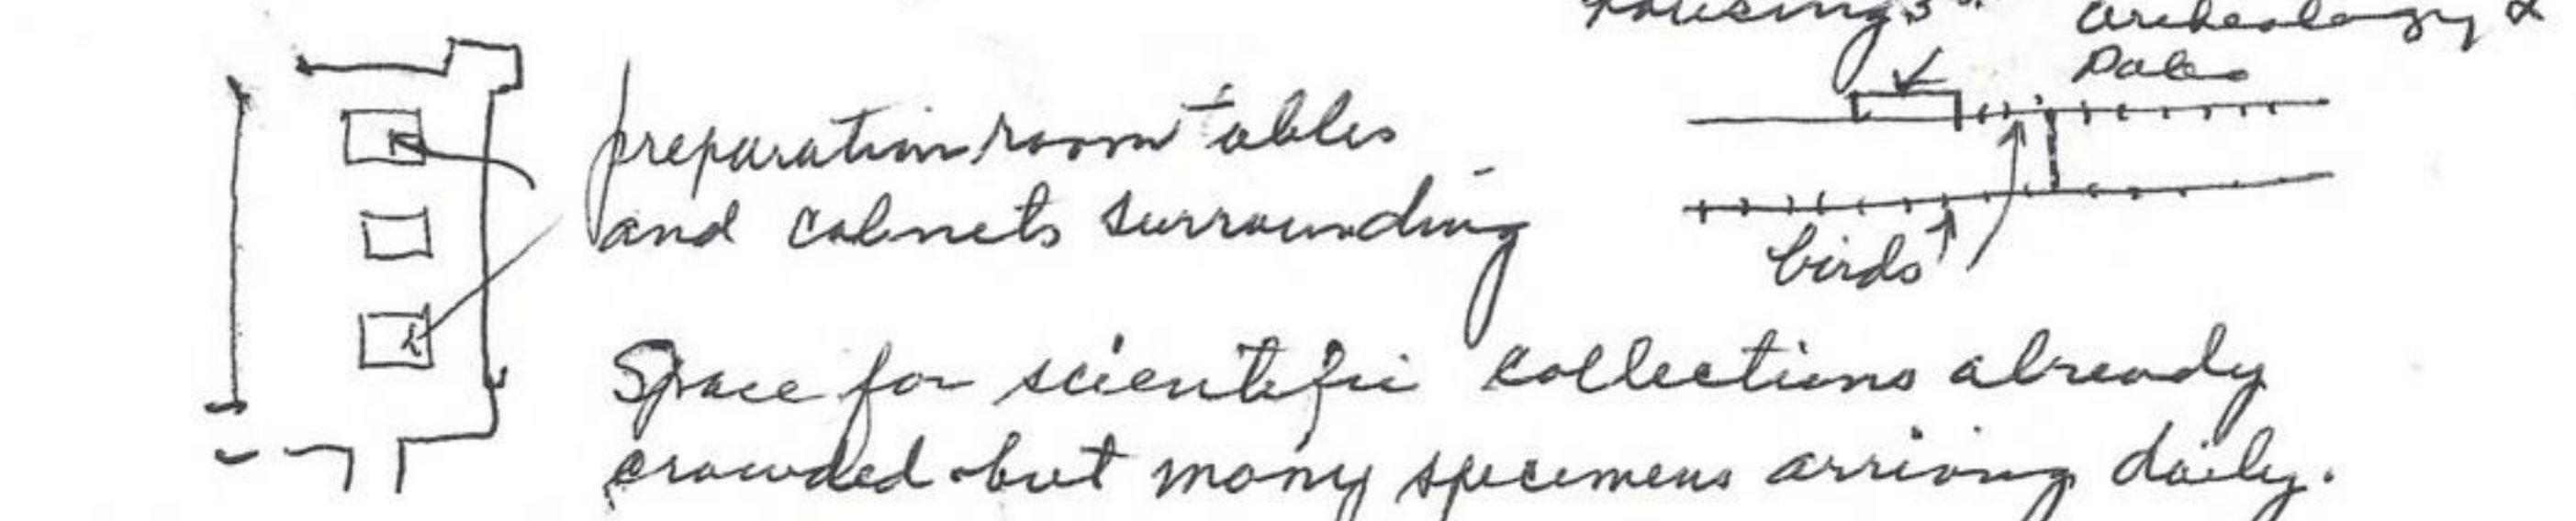 Archeology &
Paleo
preparation room tables
and cabnets surrounding
birds
Space for scientific collections already
crowded but many specimens arriving daily.